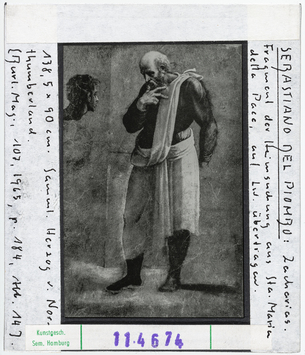 SEBASTIANO DEL PIOMBO: Zacharias.
Fragment der Heimsuchung aus Sta. Maria
della Pace, auf Lw. übertragen.
138,5 x 90 cm. Samml. Herzog v. Nor-
thumberland.
[Burl. Mag., 107, 1965, p. 184, Abb. 14].
Kunstgesch.
Sem. Hamburg
114674